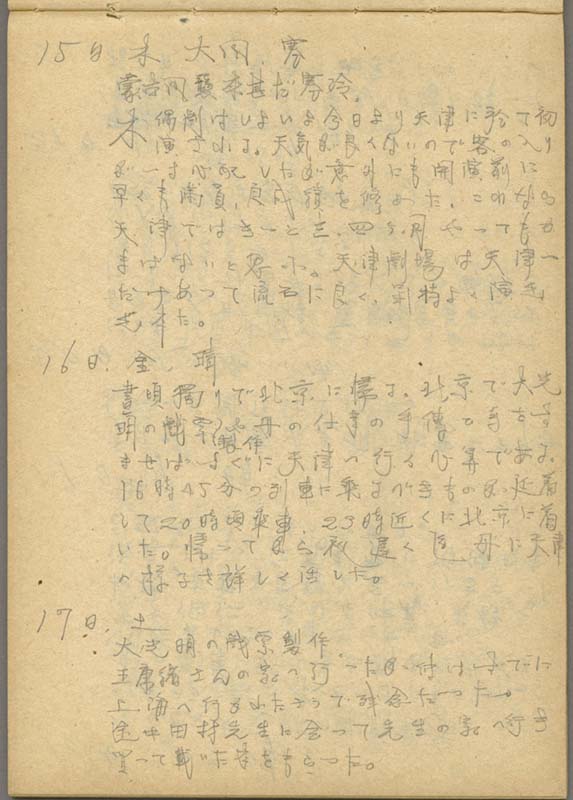 15日 木 大風、寒
蒙古風襲来甚だ寒冷。
木偶劇はいよいよ今日より天津に於て初
演される。天気が良くないので客の入り
が一寸心配したが意外にも開演前に
早くも満員、良成績を修めた。これなら
天津ではきっと三、四ヶ月やってもか
まはないと思ふ。天津劇場は天津一
だけあって流石に良く、気持よく演出
出来た。
16日、金、晴
晝頃獨りで北京に帰る。北京で大光
明の戯院や母の仕事の手傳を
製作
すませばすぐに天津へ行く心算である。
16時45分の列車に乗るべきものが延着
して20時頃乗車、23時近くに北京に着
いた。帰ってから夜遅く迄母に天津
の様子を詳しく話した。
17日、土
大光明の戯票製作。
王康緒さんの家へ行ったが 付はすでに
上海へ行かれたさうで残念だった。
途中田村先生に会って先生の家へ行き
買って戴いた を貰った。